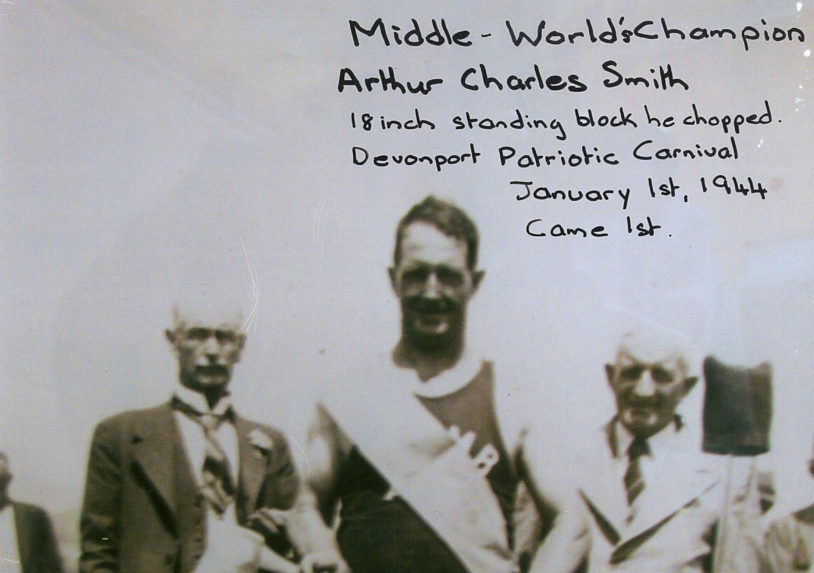 Middle - World's Champion
Arthur Charles Smith
18 inch standing block he chopped.
Devonport Patriotic Carnival
January 1st, 1944
Came 1st.